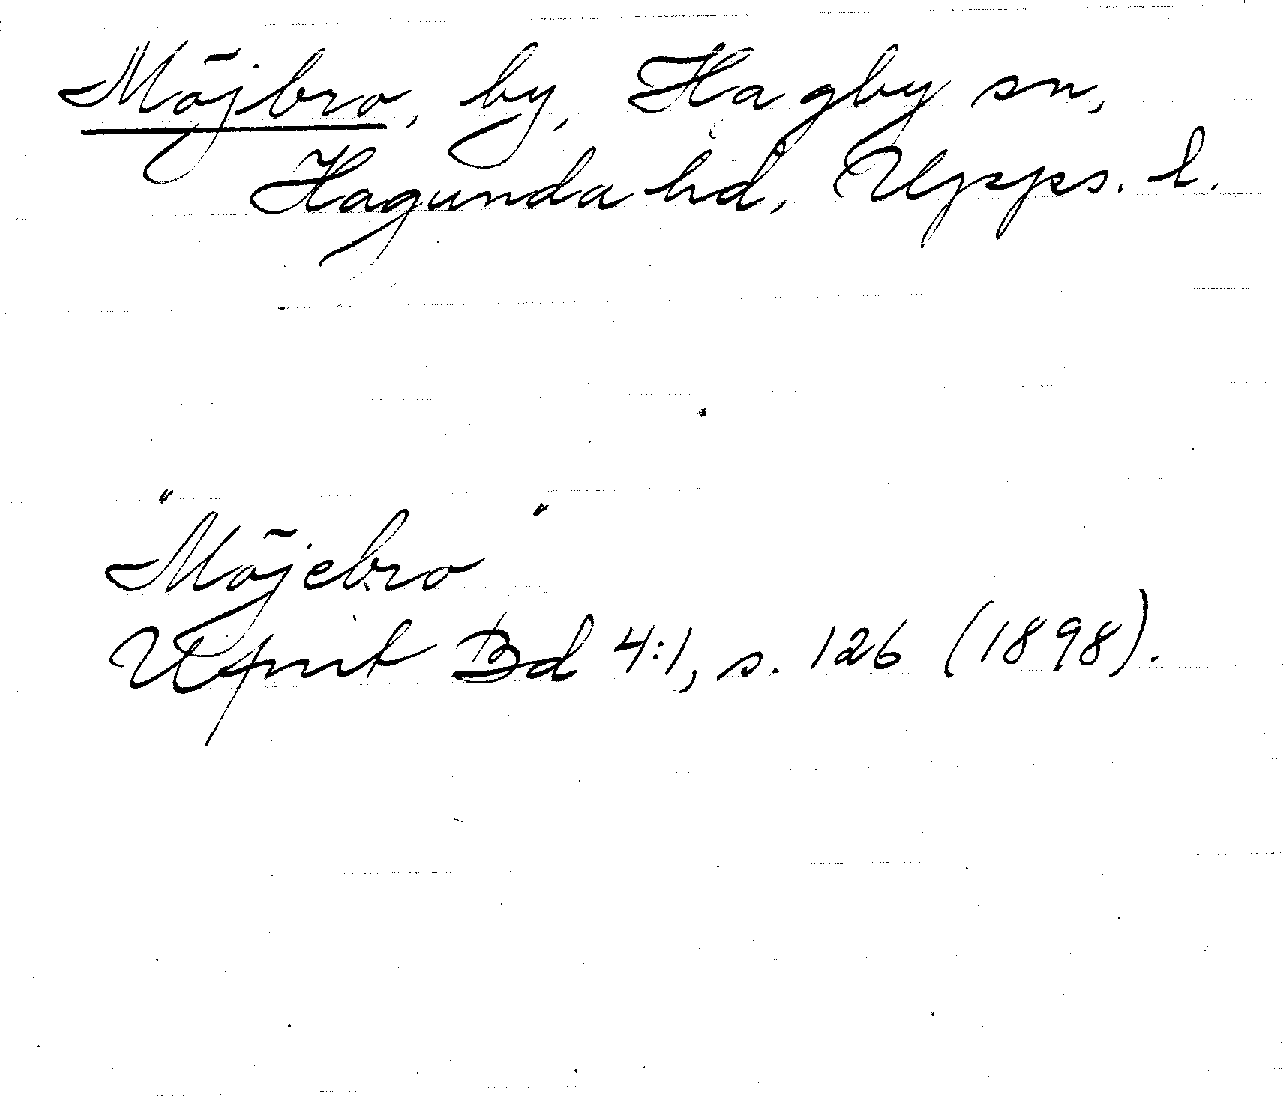 Möjbro, by, Hagby sn,
Hagunda hd, Upps. l.
"Möjebro"
Ufmt Bd 4:1, s. 126 (1898).